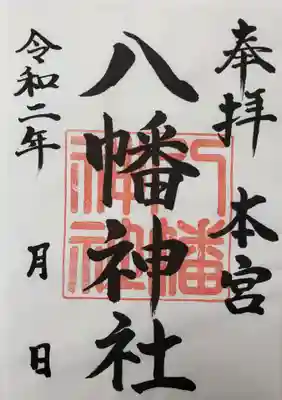 奉拝 本宮
八幡神社
八幡
神社
令和二年 月 日